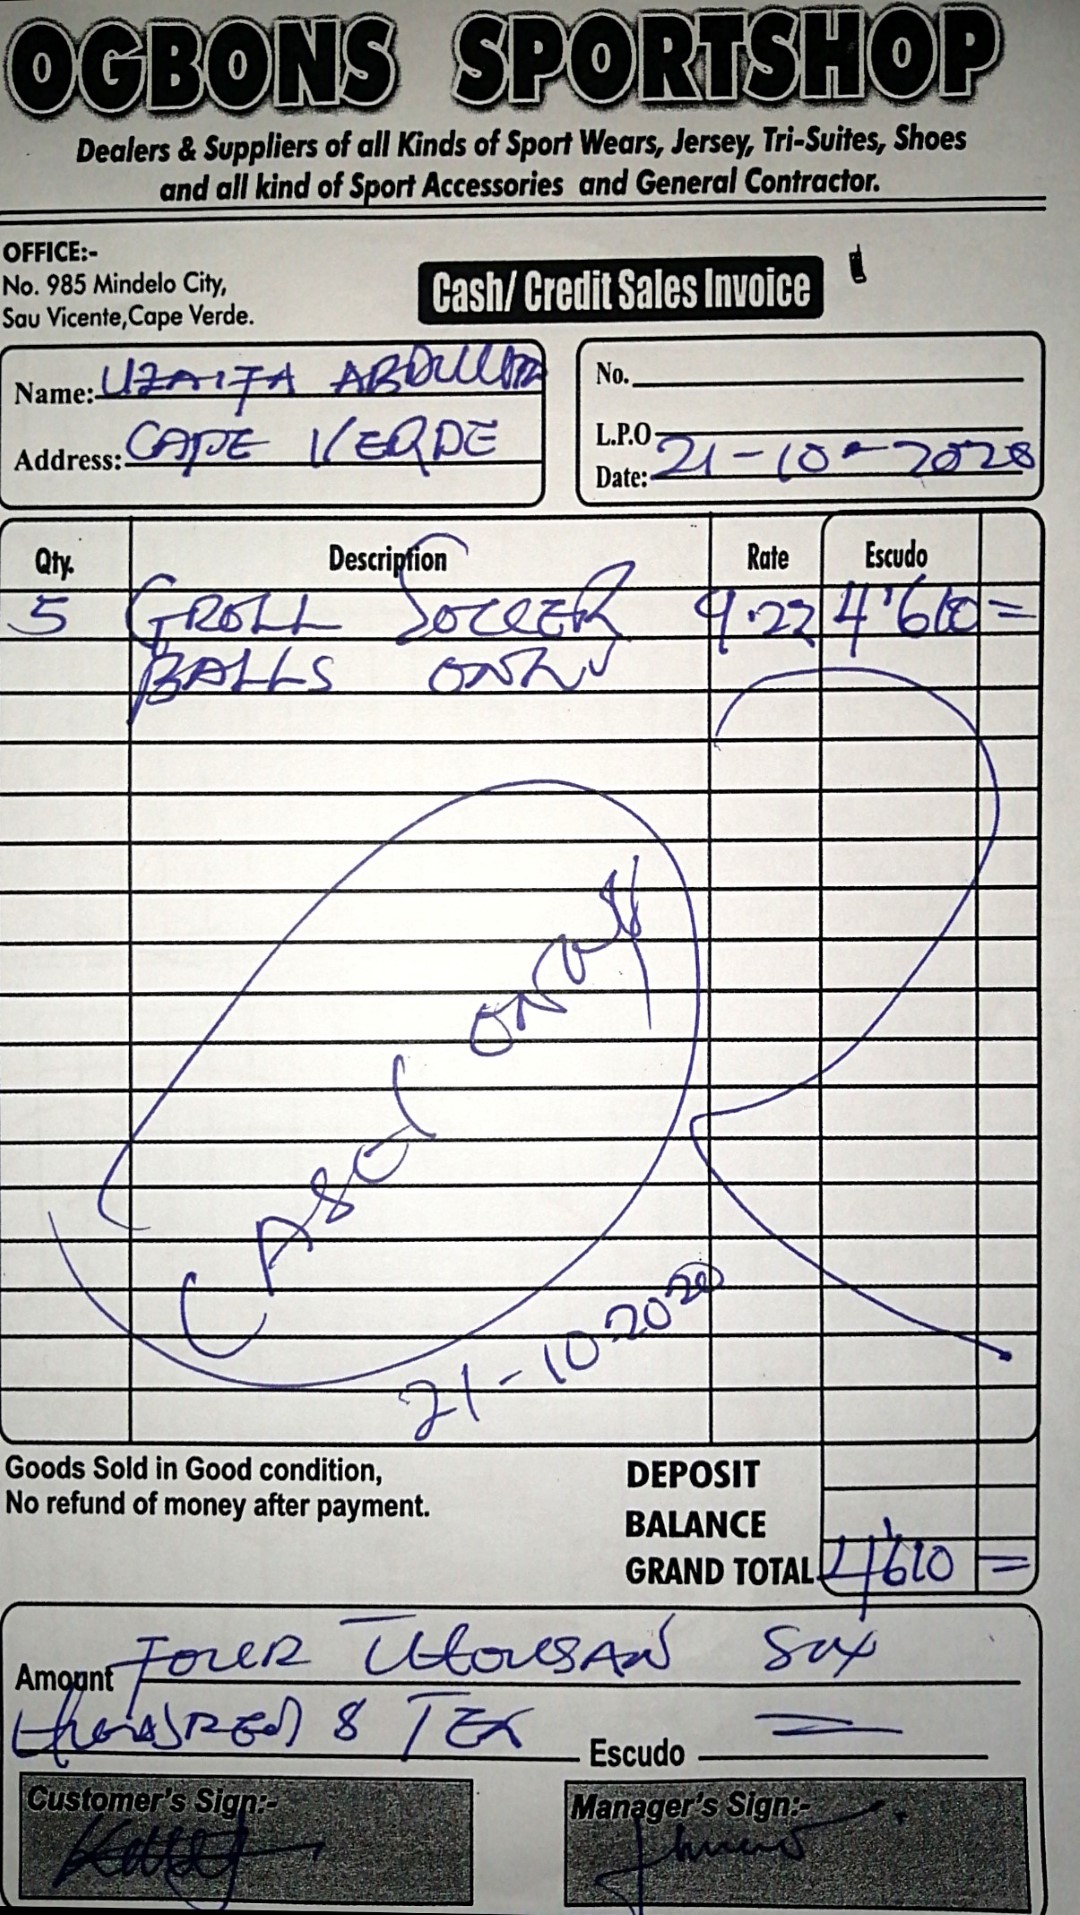 OGBONS SPORTSHOP
Dealers & Suppliers of all Kinds of Sport Wears, Jersey, Tri-Suites, Shoes
and all kind of Sport Accessories and General Contractor.
OFFICE:-
No. 985 Mindelo City,
Sau Vicente, Cape Verde.
Cash/ Credit Sales Invoice
Name:
Address: CAPE VERDE
No.
L.P.O
Date: 21-10-2020
Qty. Description Rate Escudo
5 GROLL SOCCER 9.22 4'610 =
BALLS ONLY
CASH ONLY
21-10-2020
Goods Sold in Good condition,
No refund of money after payment.
DEPOSIT
BALANCE
GRAND TOTAL 4'610 =
Amount FOUR THOUSAN SIX
HUNDRED & TEN Escudo =
Customer's Sign:-
Manager's Sign:-